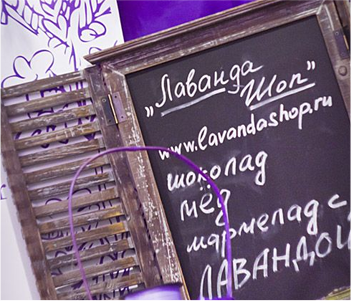 „Лаванда
Шоп"
www.lavandashop.ru
шоколад
мёд
мармелад с
ЛАВАНДОЙ